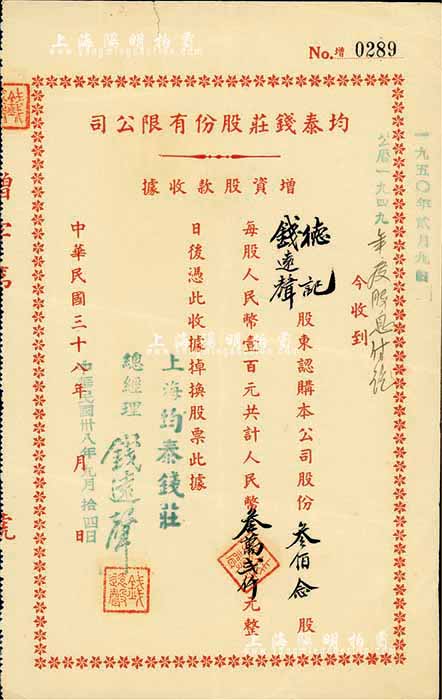 上海陽明拍賣
No. 增 0289
均泰錢莊股份有限公司
增資股款收據
一九五〇年貳月九日
公曆一九四九年度股息付訖
今收到
德記
錢遠聲
股東認購本公司股份叁佰念股
每股人民幣壹百元共計人民幣叁萬貳仟元整
日後憑此收據掉換股票此據
上海均泰錢莊
總經理 錢遠聲
中華民國三十八年 月 日
中華民國卅八年九月拾四日
上海陽明拍賣
上海陽明拍賣